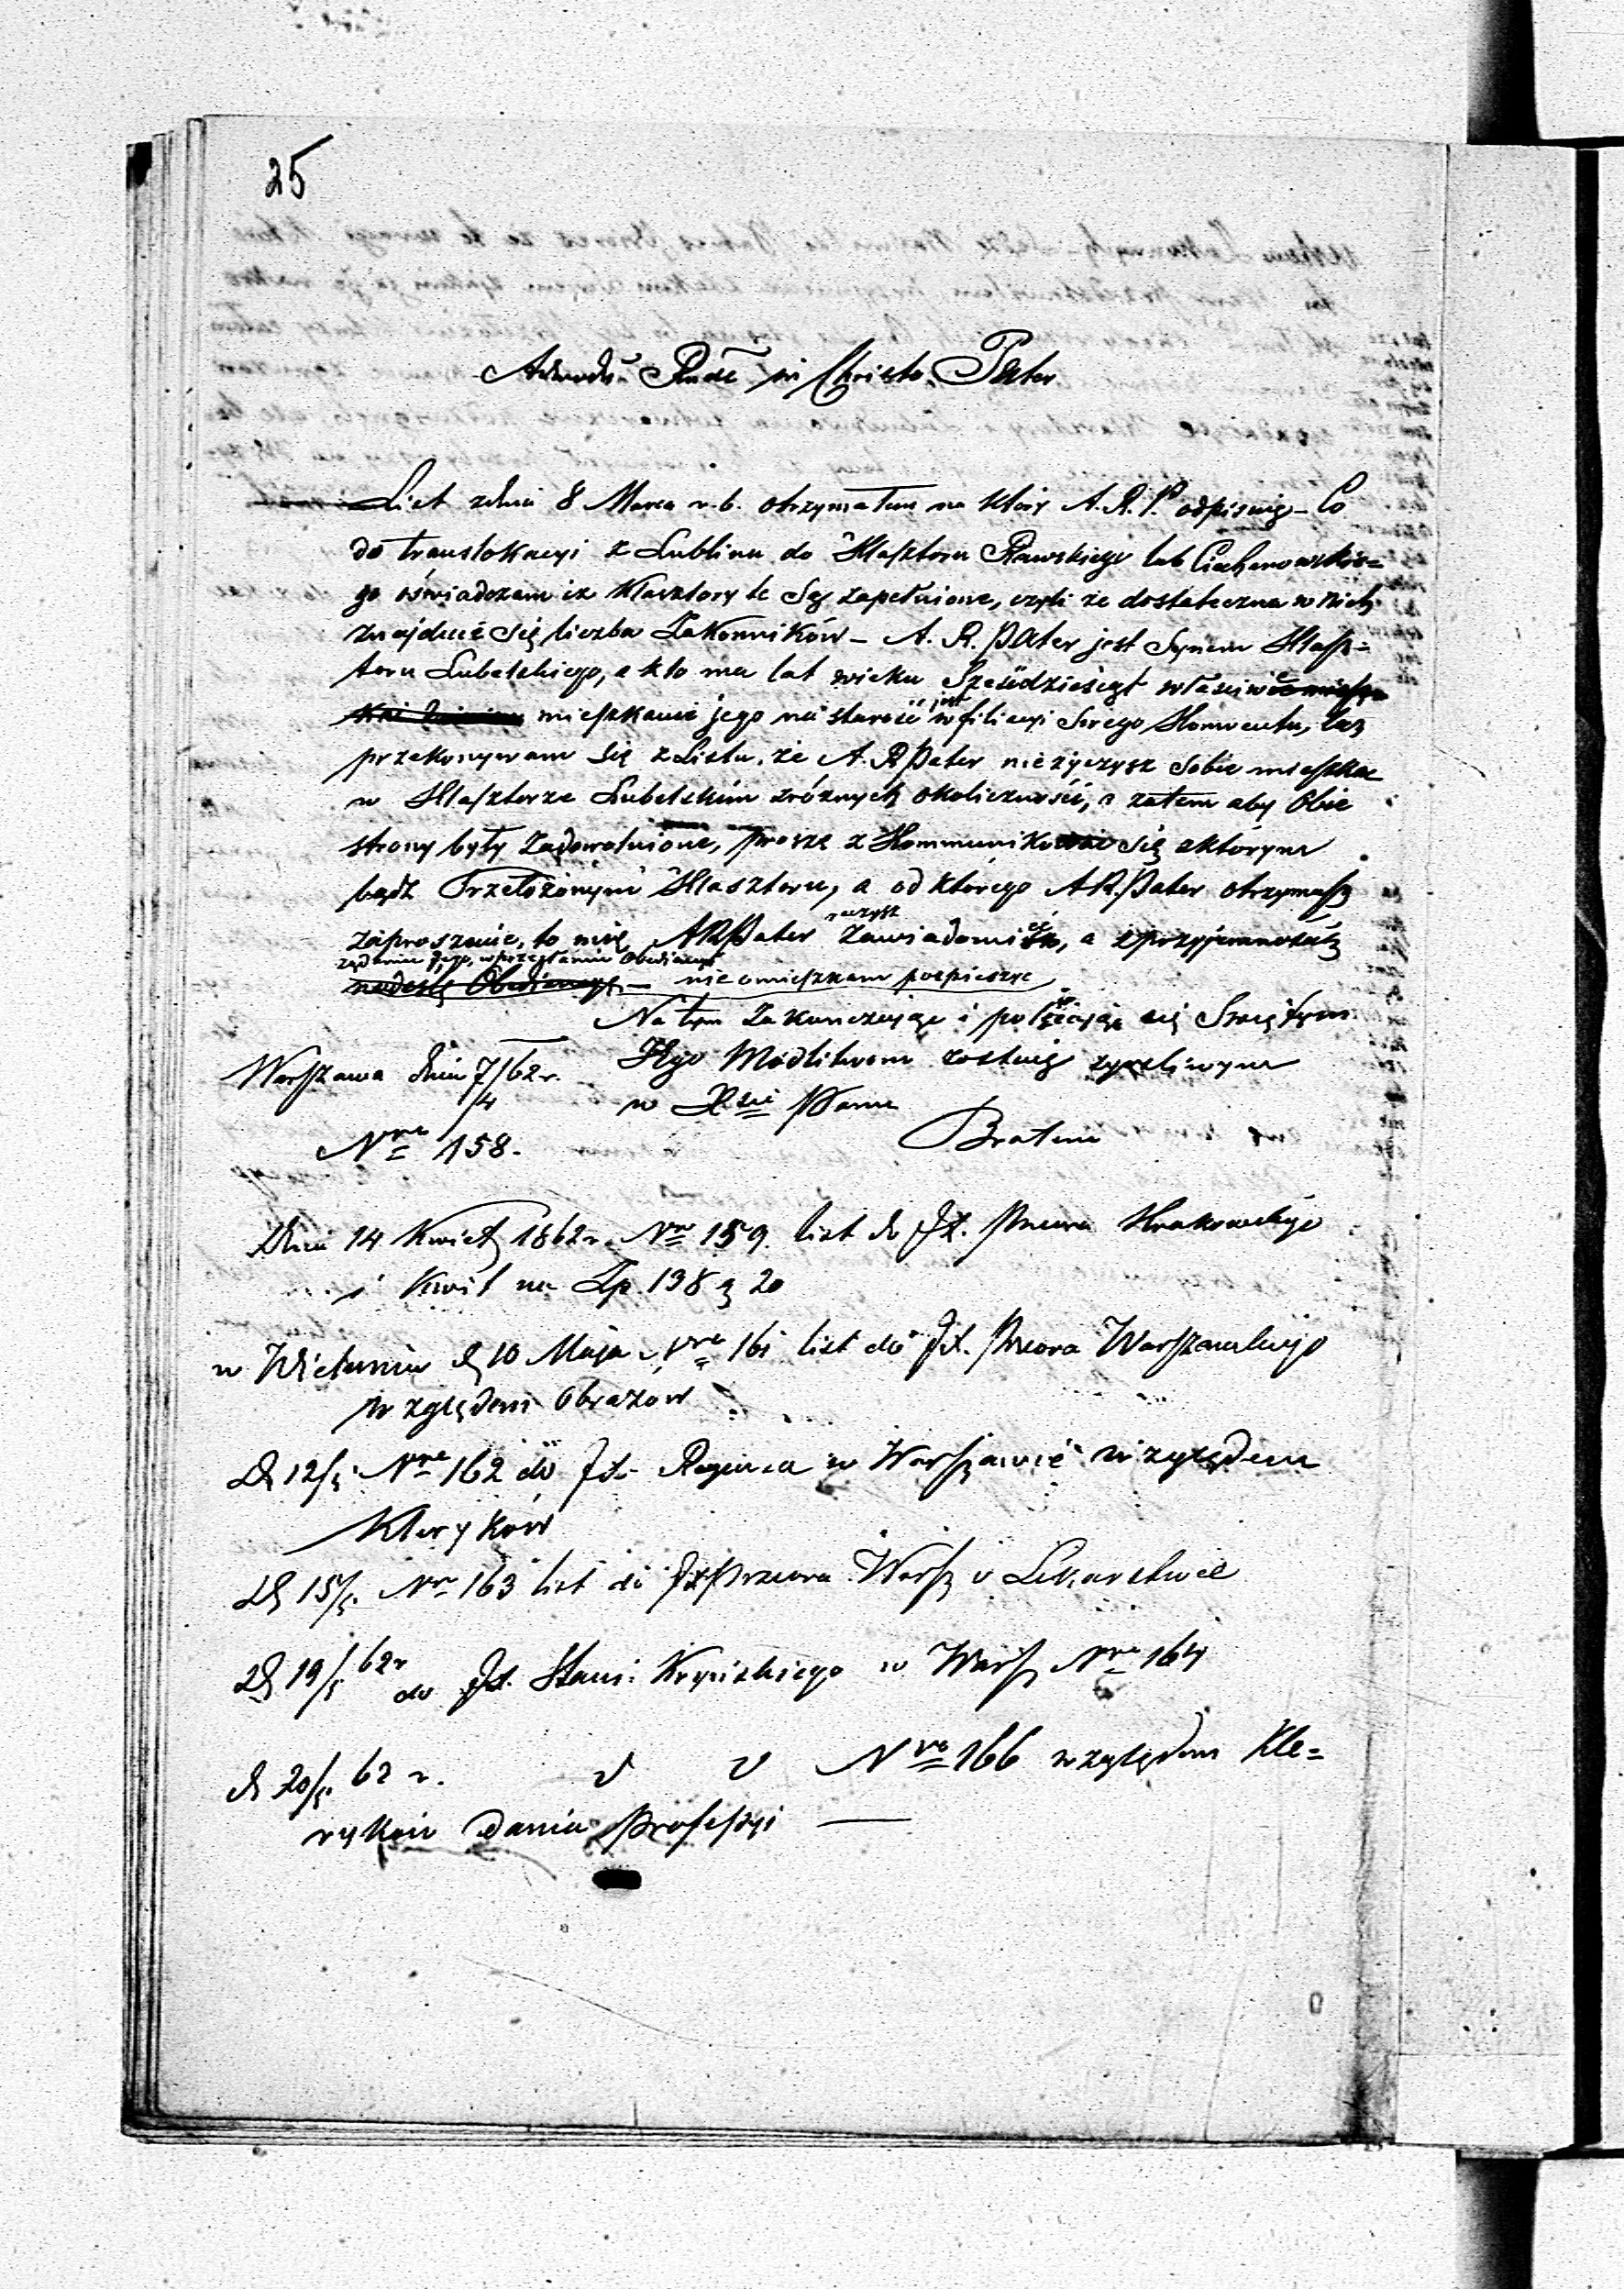 25
Admodū Rnde in Christo Pater
List z dnia 8 Marca r. b. otrzymałem na który A. R. P. odpisuię – Co
do translokacyi z Lublina do Klasztoru Rawskiego lub Ciechanowskie=
go oświadczam iż Klasztory te Są zapełnione, czyli że dostateczna w nich
znajduie się liczba Zakonników – A. R. Pater jest Synem Klasz=
toru Lubelskiego, a kto ma lat wieku Sześćdziesiąt właściwie
mieszkanie jego na starość jest w filiacyi Swego Konwentu, lecz
przekonywam się z Listu, że A. R Pater nieżyczysz Sobie mieszkac
w Klasztorze Lubelskim zróżnych okoliczności, a zatem aby Obie
strony były Zadowolnione, proszę z Kommuniko się zktórym
bądz Przełożonym Klasztoru, a od którego A R. Pater otrzymasz
zaproszenie, to mię A R Pater raczysz Zawiadomić, a
żądaniu jego, w przesłaniu Obediencyi
nadeslę Obediencyę – nie omieszkam pospieszyć
Na tym Zakanczając i polecając się Swiętym
Jego Modlitwom zostaię życzliwym
Warszawa dnia 7/4 62 r.
w X.sie Panu
Bratem
Nro 158.
Dnia 14 Kwiet 1862 r. Nro 159. list do JX. Przeora Krakowskiego
i Kwit na Zp. 138 g 20
w Wieluniu d 10 Maja Nro 161 list do JX. Przeora Warszawskiego
względem Obrazów
D 12/5 Nro 162 do JX. Regensa w Warszawie względem
Kleryków
D 15/5. Nro 163 list do JX Przeora Warsz o Lekarstwie
D 19/5 62 r do JX. Stani. Krynickiego w Warsz Nro 164
d 20/5. 62 r. Nro 166 względem Kle=
ryków dania Professyi —